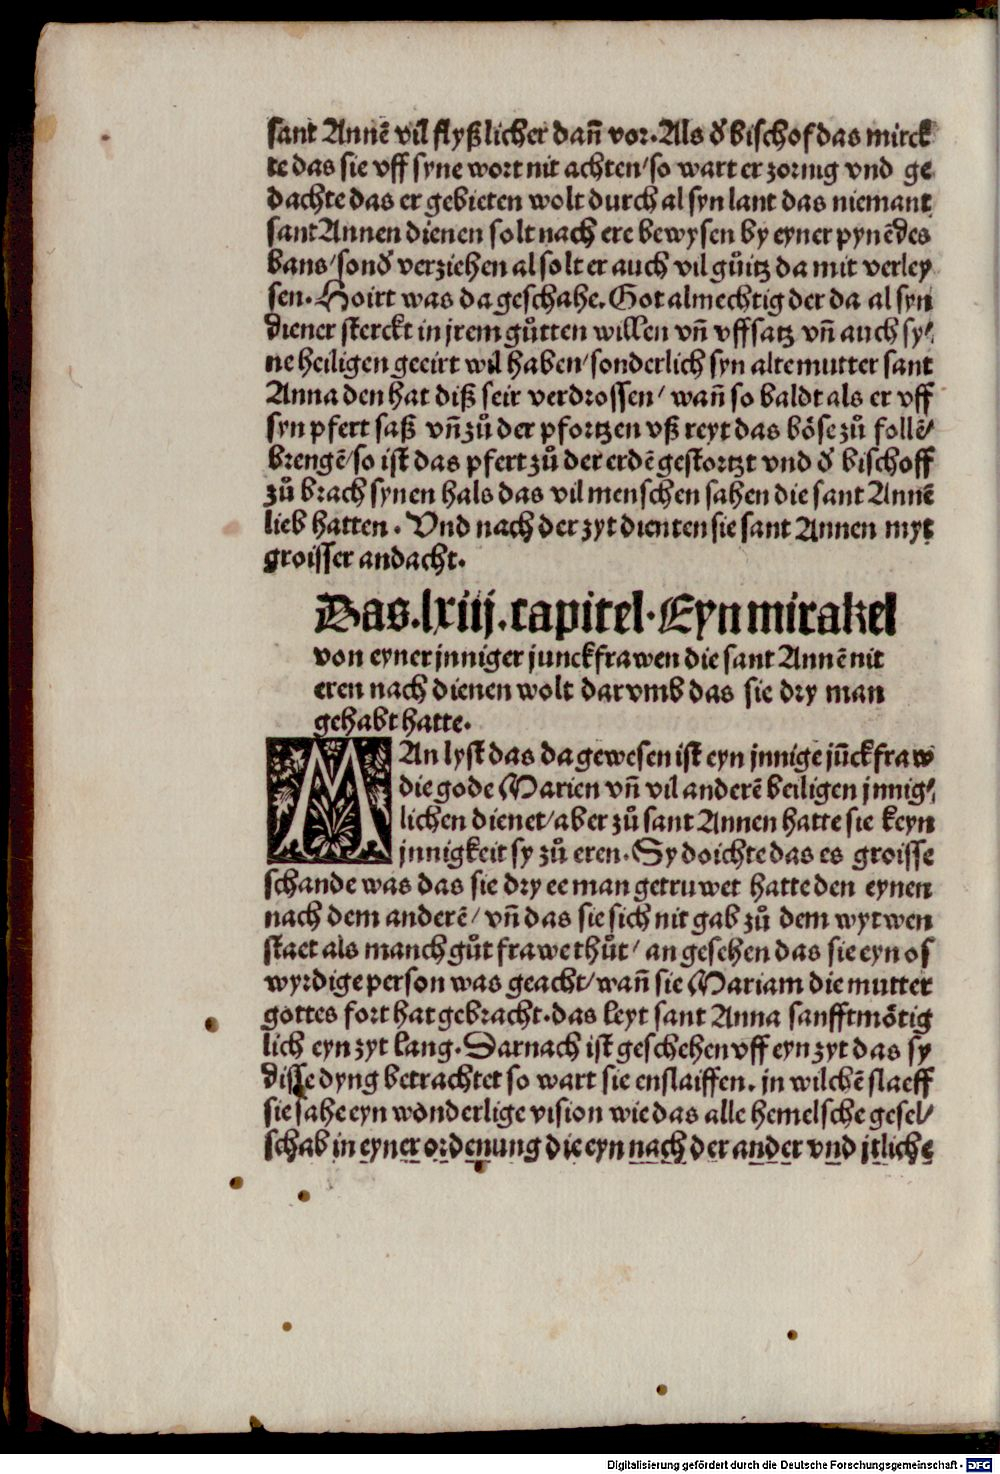 sant Annē vil flyßlicher dañ vor. Als d̓ bischof das mirck
te das sie vff syne wort nit achten/ so wart er zornig vnd ge
dachte das er gebieten wolt durch al syn lant das niemant
sant Annen dienen solt nach ere bewysen by eyner pynē des
bans/ sond̓ verziehen al solt er auch vil gůitz da mit verley
sen. Hoirt was da geschahe. Got almechtig der da al syn
diener sterckt in jrem gůtten willen vñ vffsatz vñ auch sy⸗
ne heiligen geeirt wil haben/ sonderlich syn altemutter sant
Anna den hat diß seir verdrossen/ wañ so baldt als er vff
syn pfert saß vñ zů der pfortzen vß reyt das böse zů follē/
brengē/ so ist das pfert zů der erdē gestortzt vnd d̓ bischoff
zů brach synen hals das vil menschen sahen die sant Annē
lieb hatten. Vnd nach der zyt dienten sie sant Annen myt
groisser andacht.
Das .lxiij. capitel. Eyn mirakel
von eyner jnniger junckfrawen die sant Annē nit
eren nach dienen wolt darvmb das sie dry man
gehabt hatte.
MAn lyst das da gewesen ist eyn jnnige jūckfraw
die gode Marien vñ vil anderē heiligen jnnig⸗
lichen dienet/ aber zů sant Annen hatte sie keyn
jnnigkeit sy zů eren. Sy doichte das es groisse
schande was das sie dry ee man getruwet hatte den eynen
nach dem anderē/ vñ das sie sich nit gab zů dem wytwen
staet als manch gůt frawe thůt/ an gesehen das sie eyn os
wyrdige person was geacht/ wañ sie Mariam die mutter
gottes fort hat gebracht. das leyt sant Anna sanfftmötig
lich eyn zyt lang. Darnach ist geschehen vff eyn zyt das sy
disse dyng betrachtet so wart sie enslaiffen. jn wilchē slaeff
sie sahe eyn wonderlige vision wie das alle hemelsche gesel/
schab in eyner ordenung die eyn nach der ander vnd jtliche
Digitalisierung gefördert durch die Deutsche Forschungsgemeinschaft - DFG